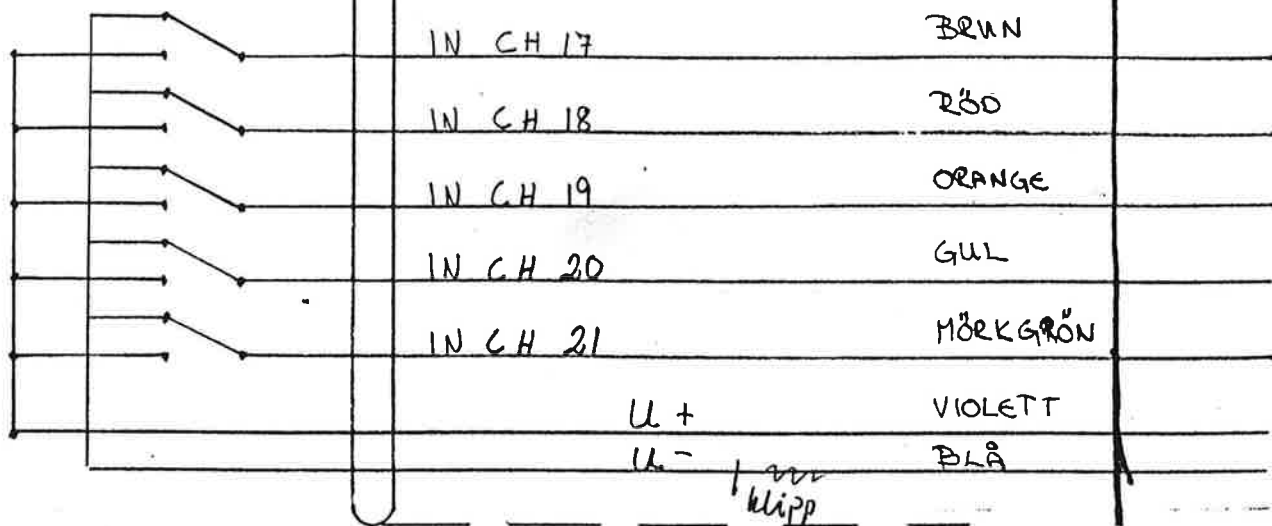 IN CH 17 BRUN
IN CH 18 RÖD
IN CH 19 ORANGE
IN CH 20 GUL
IN CH 21 MÖRKGRÖN
U + VIOLETT
U - BLÅ
klipp